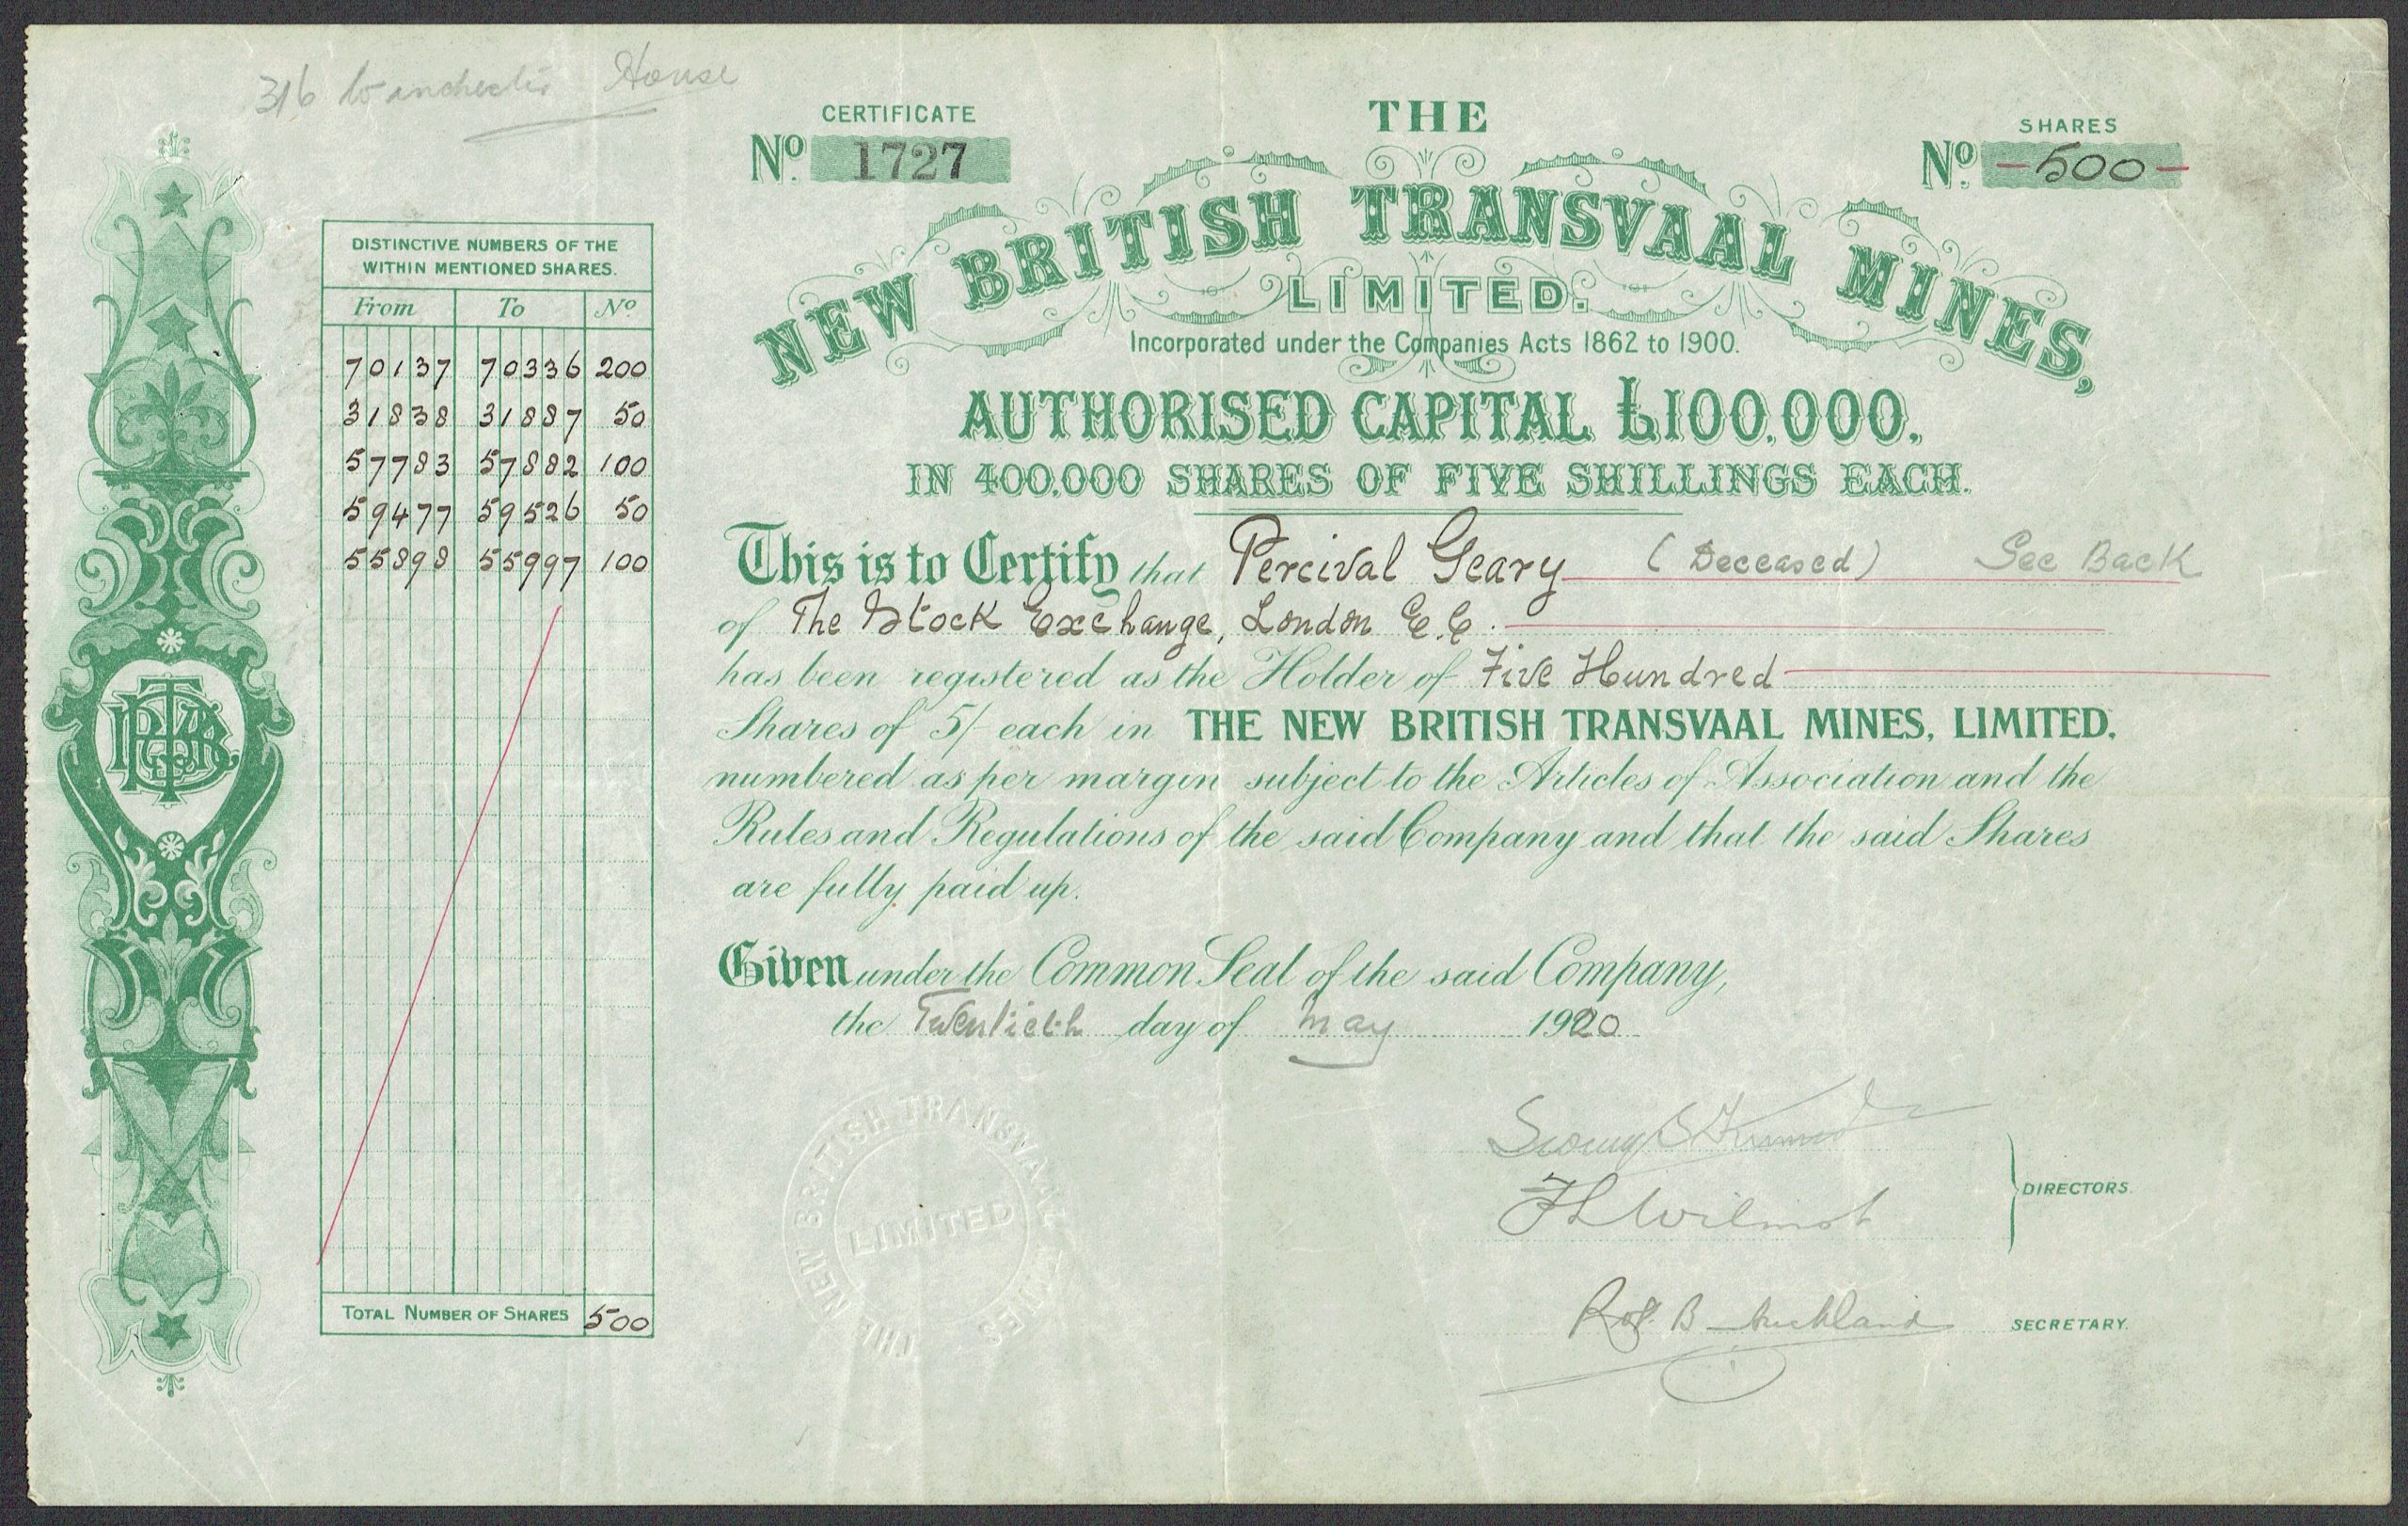 316 Winchester House
CERTIFICATE
No. 1727
THE
SHARES
No. -500-
NEW BRITISH TRANSVAAL MINES,
LIMITED.
Incorporated under the Companies Acts 1862 to 1900.
AUTHORISED CAPITAL £100,000.
IN 400,000 SHARES OF FIVE SHILLINGS EACH.
DISTINCTIVE NUMBERS OF THE
WITHIN MENTIONED SHARES.
From To No
70137 70336 200
31838 31887 50
57783 57882 100
59477 59526 50
55898 55997 100
TOTAL NUMBER OF SHARES 500
This is to Certify that Percival Geary (Deceased) See Back
of The Stock Exchange, London E.C.
has been registered as the Holder of Five Hundred
Shares of 5/- each in THE NEW BRITISH TRANSVAAL MINES, LIMITED.
numbered as per margin subject to the Articles of Association and the
Rules and Regulations of the said Company and that the said Shares
are fully paid up.
Given under the Common Seal of the said Company,
the Twentieth day of May 1920
THE NEW BRITISH TRANSVAAL MINES
LIMITED
F L Wilmot
DIRECTORS.
B Auckland
SECRETARY.